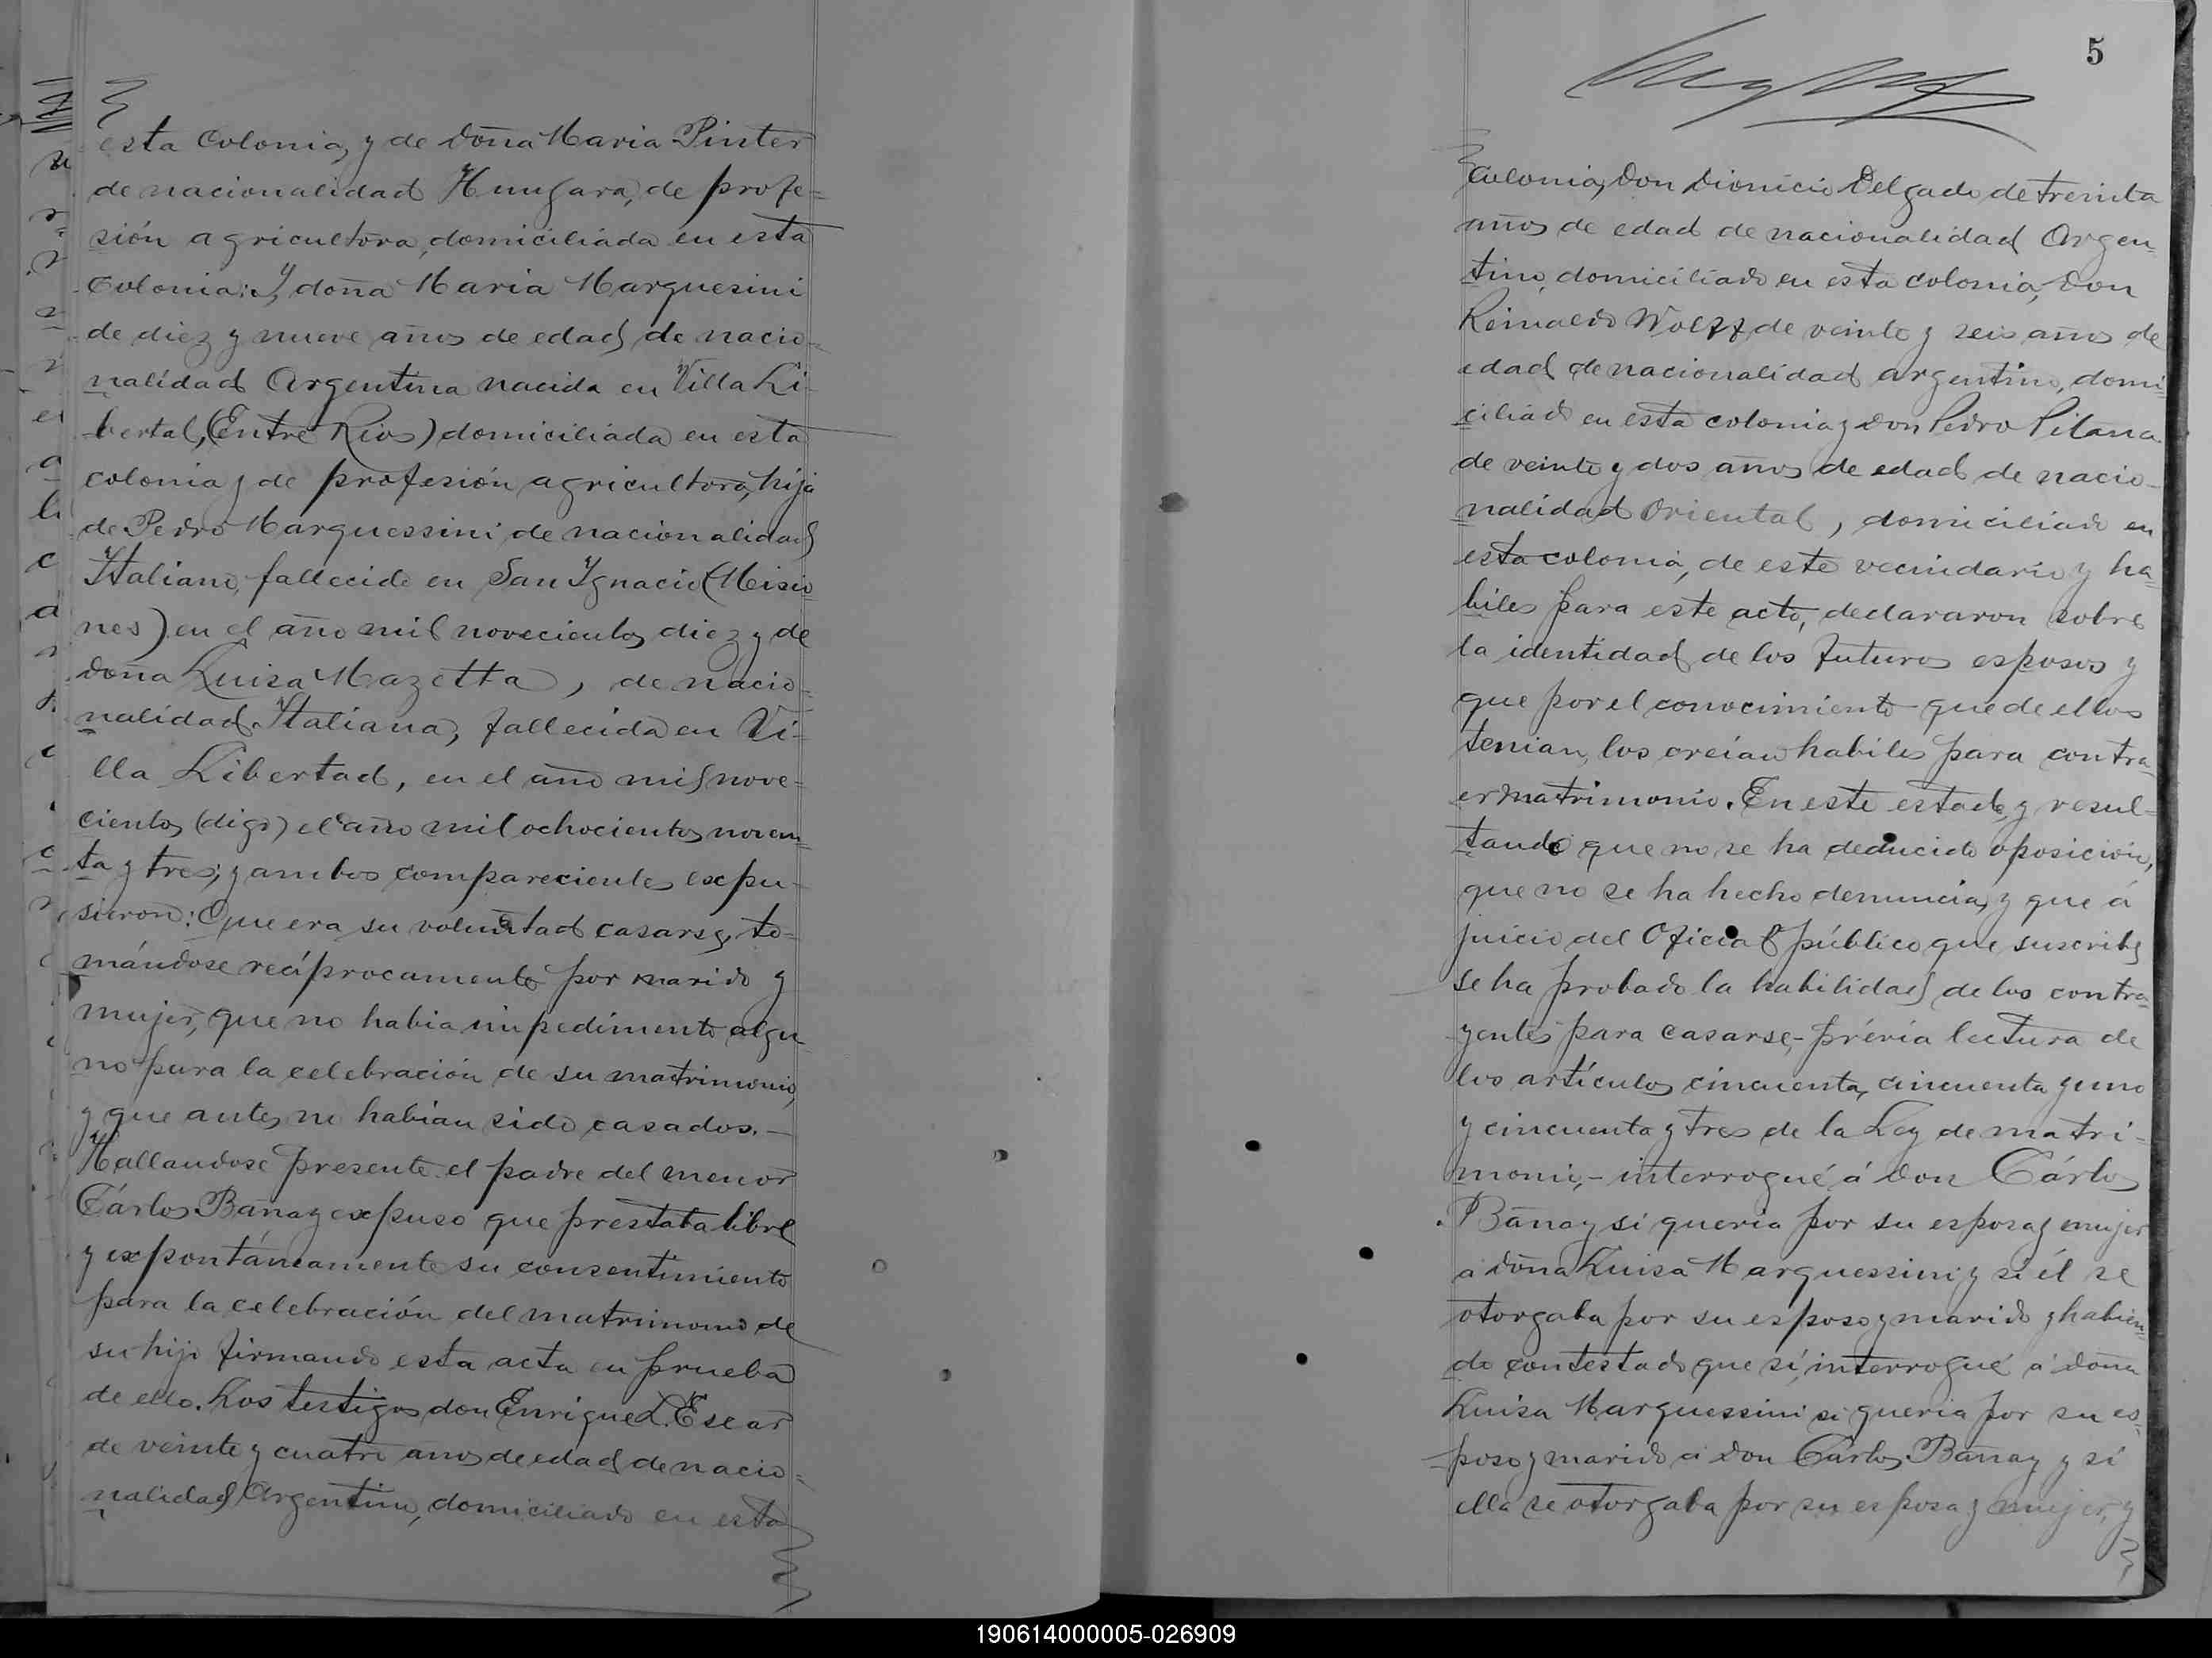 esta Colonia, y de Doña Maria Pinter
de nacionalidad Hungara, de profe=
sión agricultora, domiciliada en esta
Colonia: Y, doña Maria Marquesini
de diez y nueve años de edad, de nacio=
nalidad Argentina nacida en Villa Li-
bertad, (Entre Rios) domiciliada en esta
colonia y de profesión agricultora, hija
de Pedro Marquessini de nacionalidad
Italiano, fallecido en San Ygnacio (Misio=
nes) en el año mil novecientos diez y de
Doña Luisa Mazetta, de nacio=
nalidad Italiana, fallecida en Vi=
lla Libertad, en el año mil nove=
cientos (digo) el año mil ochocientos noven=
ta y tres; y ambos comparecientes expu-
sieron: Que era su voluntad casarse, to-
mándose recíprocamente por marido y
mujer, que no habia impedimento algu-
no para la celebración de su matrimonio,
y que antes no habian sido casados.—
Hallandose presente el padre del menor
Cárlos Banay expuso que prestaba libre
y expontáneamente su consentimiento
para la celebración del matrimonio de
su hijo firmando esta acta en prueba
de ello. Los testigos don Enrique L. Escar
de veinte y cuatro anos de edad de nacio=
nalidad Argentino, domiciliado en esta
5
Colonia, Don Dionicio Delgado de treinta
años de edad de nacionalidad Argen-
tino, domiciliado en esta colonia, Don
Reinaldo Wolff de veinte y seis años de
edad de nacionalidad argentino, domi=
ciliado en esta colonia y Don Pedro Pitana
de veinte y dos años de edad de nacio-
nalidad Oriental, domiciliado en
esta colonia, de este vecindario y ha=
biles para este acto, declararon sobre
la identidad de los futuros esposos y
que por el conocimiento que de ellos
tenian, los creian habiles para contra=
er matrimonio. En este estado, y resul-
tando que no se ha deducido oposición,
que no se ha hecho denuncia, y que á
juicio del Oficial público que suscribe
se ha probado la habilidad de los contra=
yentes para casarse,- prévia lectura de
los artículos cincuenta, cincuenta y uno
y cincuenta y tres de la Ley de matri-
monio,- interrogué á don Cárlos
Banay si queria por su esposa y mujer
á doña Luisa Marquessini y si él se
otorgaba por su esposo y marido y habien=
do contestado que sí, interrogué á doña
Luisa Marquessini si queria por su es=
poso y marido á don Cárlos Banay y si
ella se otorgaba por su esposa y mujer, y
190614000005-026909